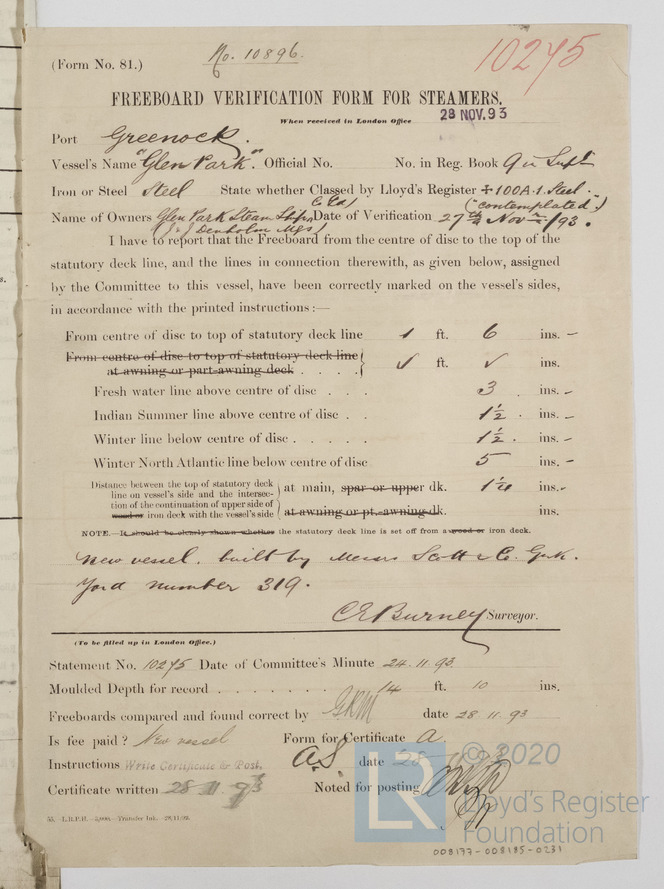 (Form No. 81.)
No. 10896.
10275
FREEBOARD VERIFICATION FORM FOR STEAMERS.
When received in London Office 28 NOV. 93
Port Greenock.
Vessel's Name "Glen Park". Official No. No. in Reg. Book 9 in Suplt
Iron or Steel Steel State whether Classed by Lloyd's Register ✠ 100A.1. Steel.
("contemplated.")
Name of Owners Glen Park Steam Ship Co Ld Date of Verification 27th Nov /93.
(J & J Denholm Mgs)
I have to report that the Freeboard from the centre of disc to the top of the
statutory deck line, and the lines in connection therewith, as given below, assigned
by the Committee to this vessel, have been correctly marked on the vessel's sides,
in accordance with the printed instructions :—
From centre of disc to top of statutory deck line 1 ft. 6 ins. –
From centre of disc to top of statutory deck line
at awning or part-awning deck . . . . ✓ ft. ✓ ins. –
Fresh water line above centre of disc . . . 3 ins. –
Indian Summer line above centre of disc . . 1½ ins. –
Winter line below centre of disc . . . . . 1½ ins. –
Winter North Atlantic line below centre of disc 5 ins. –
Distance between the top of statutory deck
line on vessel's side and the intersec-
tion of the continuation of upper side of
wood or iron deck with the vessel's side
at main, spar or upper dk. ins. –
at awning or pt.-awning dk. ins.
NOTE. It should be clearly shown whether the statutory deck line is set off from a wood or iron deck.
New vessel. built by Messrs Scott & Co. Gnk.
Yard number 319.
C E Burney Surveyor.
(To be filled up in London Office.)
Statement No. 10275 Date of Committee's Minute 24.11.93
Moulded Depth for record . . . . . . . 14 ft. 10 ins.
Freeboards compared and found correct by date 28.11.93
Is fee paid? New vessel Form for Certificate A.
Instructions Write Certificate & Post. date 28
Certificate written 28 11 93 Noted for posting
55. – L.R.P.H. – 5,000. – Transfer Ink. – 29/11/92.
LR
© 2020
Lloyd's Register
Foundation
008177-008185-0231